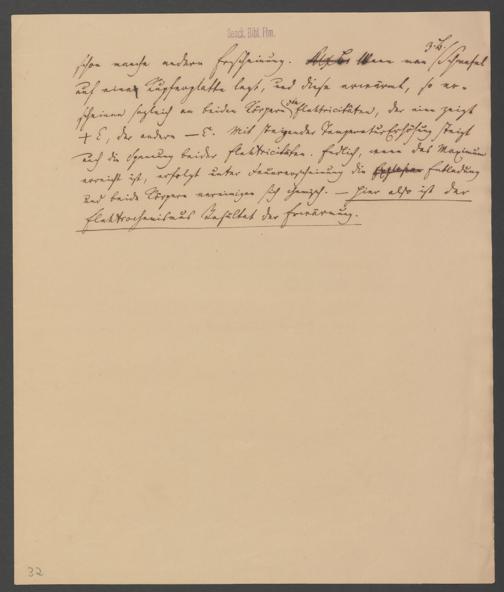 Senck. Bibl. Ffm.
schon manche andern Erscheinung. Wenn man z.B. Schwefel
auf eine Kupferplatte legt, und diese erwärmt, so er-
scheinen sogleich an beiden Körpern die Elektricitäten, der eine zeigt
+ E, der andern — E. Mit steigender Temperatur Erhöhung steigt
auch die Spannung beider Elektricitäten. Endlich, wenn das Maximum
erreicht ist, erfolgt unter Feuererscheinung die Entladung
und beide Körper vereinigen sich chemisch. — Hier also ist der
Elektrochemismus Resultat der Erwärmung.
32